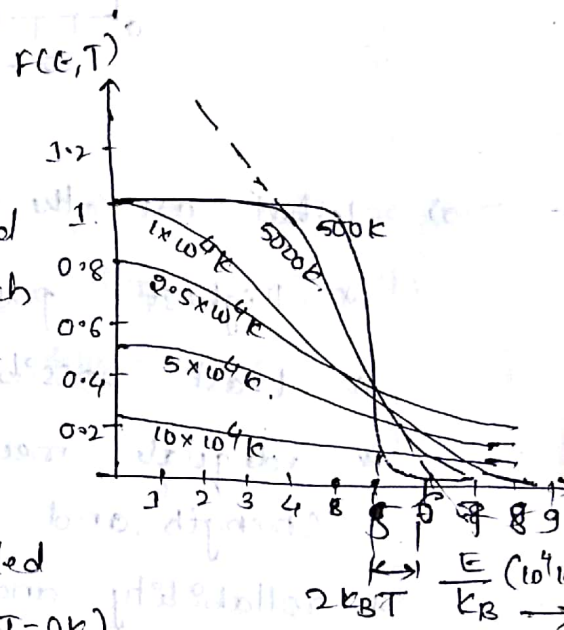 F(E,T)
1.2
1
0.8
0.6
0.4
0.2
500K
5000K.
1×10⁴K
2.5×10⁴K
5×10⁴K.
10×10⁴K.
1 2 3 4 5 6 7 8 9
2KBT
E/KB (10⁴
T=0K)